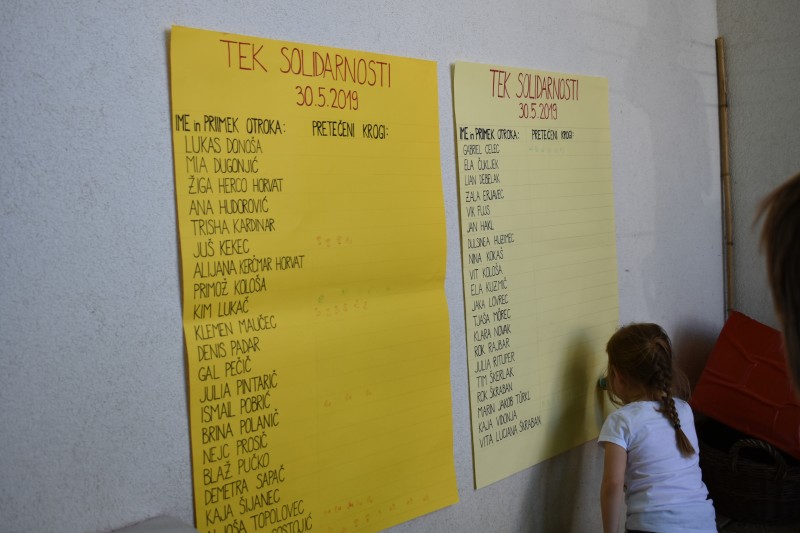 TEK SOLIDARNOSTI
30.5.2019
IME in PRIIMEK OTROKA: PRETEČENI KROGI:
LUKAS DONOŠA
MIA DUGONJIĆ
ŽIGA HERCO HORVAT
ANA HUDOROVIĆ
TRISHA KARDINAR
JUŠ KEKEC
ALIJANA KERČMAR HORVAT
PRIMOŽ KOLOŠA
KIM LUKAČ
KLEMEN MAUČEC
DENIS PADAR
GAL PEČIČ
JULIA PINTARIČ
ISMAIL POBRIĆ
BRINA POLANIČ
NEJC PROSIČ
BLAŽ PUČKO
DEMETRA SAPAČ
KAJA ŠIJANEC
ALJOŠA TOPOLOVEC
TEK SOLIDARNOSTI
30.5.2019
IME in PRIIMEK OTROKA: PRETEČENI KROGI:
GABRIEL CELEC
ELA ČUKLJEK
LIAN DEBELAK
ZALA ERJAVEC
VIK FLUS
JAN HAKL
DULSINEA
NINA KOKAŠ
VIT KOLOŠA
ELA KUZMIČ
JAKA LOVREC
TJAŠA MÖREC
KLARA NOVAK
ROK RAJBAR
JULIA RITUPER
TIM ŠKERLAK
ROK ŠKRABAN
MARIN JAKOB TÜRKL
KAJA VIDONJA
VITA LUCIANA ŠKRABAN